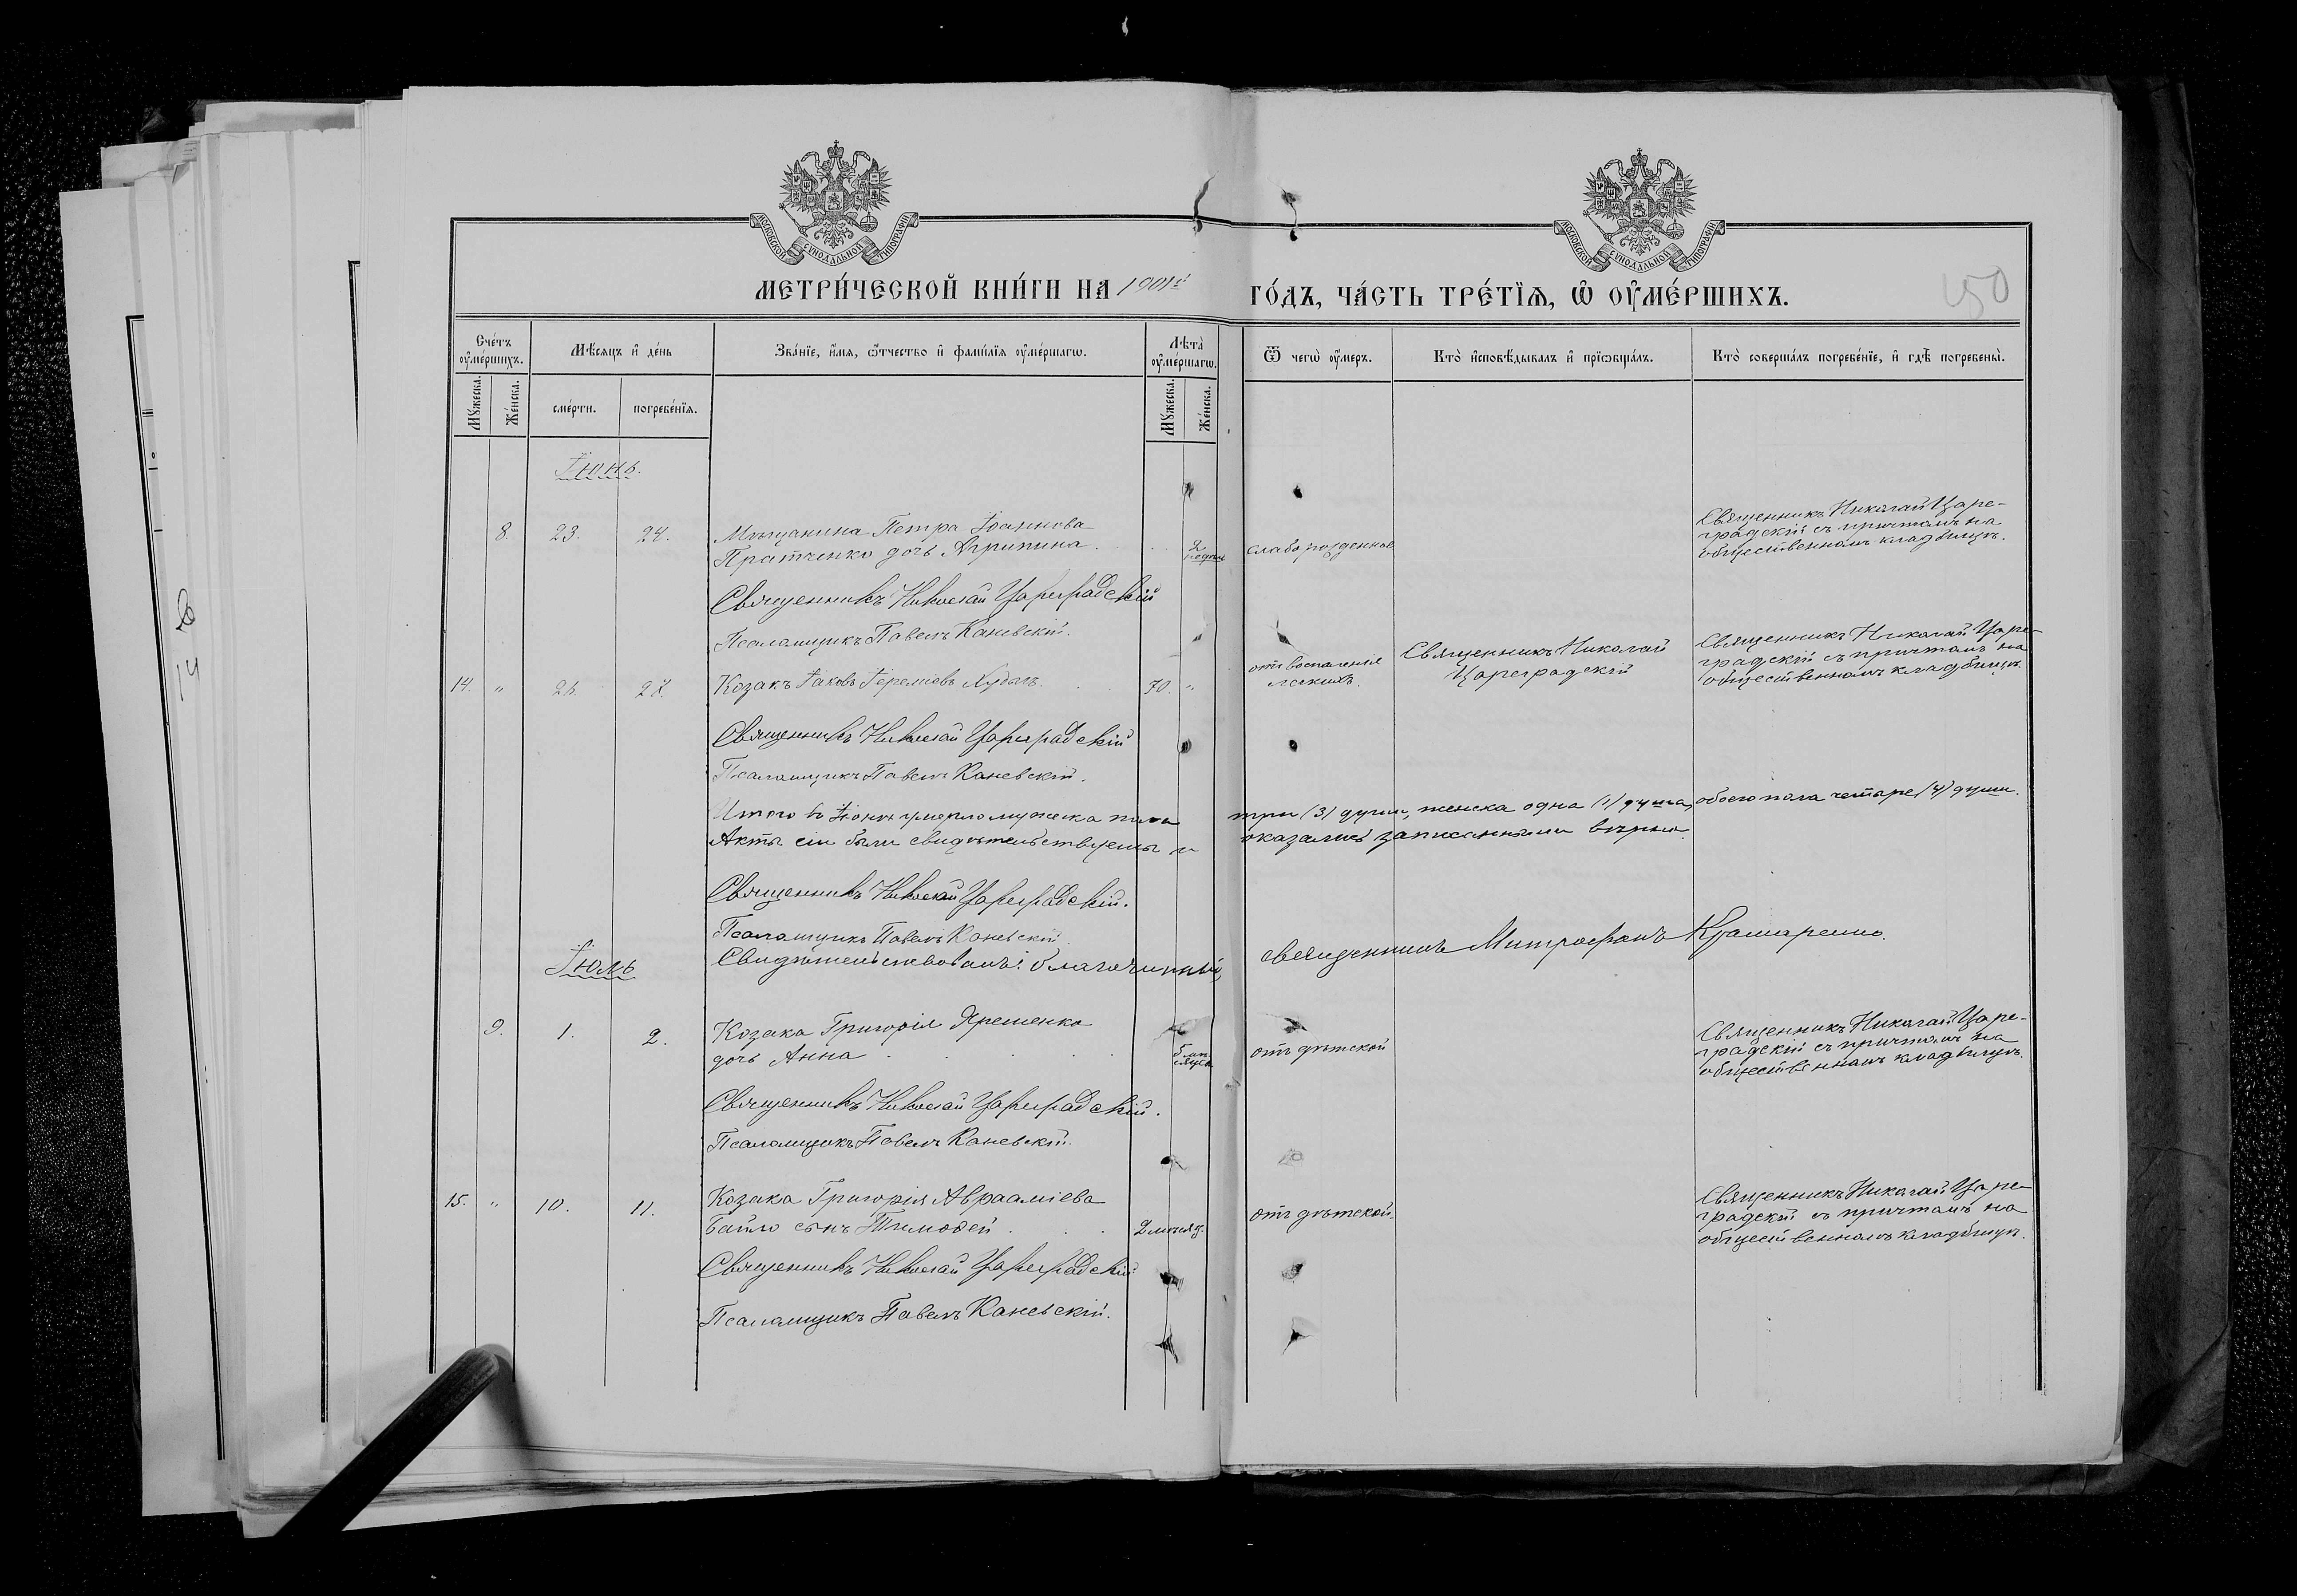 МОСКОВСКОЙ СѴНОДАЛЬНОЙ ТИПОГРАФІИ
МОСКОВСКОЙ СѴНОДАЛЬНОЙ ТИПОГРАФІИ
МЕТРИ́ЧЕСКОЙ КНИ́ГИ НА 1901й ГО́ДЪ, ЧА́СТЬ ТРЕ́ТЇѦ, Ѡ ОУ҆МЕ́РШИХЪ.
50
Сче́тъ оу҆ме́ршихъ.
Мѣсяцъ и҆ де́нь
Зва́нїе, и҆́мя, ѻ҆́тчество и҆ фами́лїя оу҆ме́ршагѡ.
Лѣта̀ оу҆ме́ршагѡ.
Ѿ чегѡ̀ оу҆́меръ.
Кто̀ и҆сповѣ́дывалъ и҆ прїѡбща́лъ.
Кто̀ соверша́лъ погребе́нїе, и҆ гдѣ̀ погребены̀.
Мꙋжеска.
Же́нска.
сме́рти.
погребе́нїя.
Мꙋжеска.
Же́нска.
Іюнь.
8. 23. 24. Мѣщанина Петра Іоаннова
дочь Агрипина. 2 недѣли
слаборожденная
Священникъ Николай Царе-
градскій съ причтомъ на
общественномъ кладбищѣ.
Священникъ Николай Цареградскій
Псаломщикъ Павелъ Каневскій.
14. " 26. 27. Козакъ Іаковъ Іереміевъ 70. "
отъ воспаленія
легкихъ.
Священникъ Николай
Цареградскій
Священникъ Николай Царе-
градскій съ причтомъ на
общественномъ кладбищѣ.
Священникъ Николай Цареградскій
Псаломщикъ Павелъ Каневскій.
Итого въ Іюнѣ умерло мужеска пола три (3) души, женска одна (1) душа, обоего пола четыре (4) души.
Акты сіи были свидѣтельствуемы и оказались записанными вѣрно.
Священникъ Николай Цареградскій.
Псаломщикъ Павелъ Каневскій.
Свидѣтельствовалъ: благочинный, священникъ Митрофанъ
Іюль
9. 1. 2. Козака Григорія Яременко
дочь Анна 6 мѣ-
сяцев
отъ дѣтской
Священникъ Николай Царе-
градскій съ причтомъ на
общественномъ кладбищѣ.
Священникъ Николай Цареградскій.
Псаломщикъ Павелъ Каневскій.
15. " 10. 11. Козака Григорія Авраамiева
Байло сынъ Тимофей 2 мѣсяц.
отъ дѣтской
Священникъ Николай Царе-
градскій съ причтомъ на
общественномъ кладбищѣ.
Священникъ Николай Цареградскій
Псаломщикъ Павелъ Каневскій.